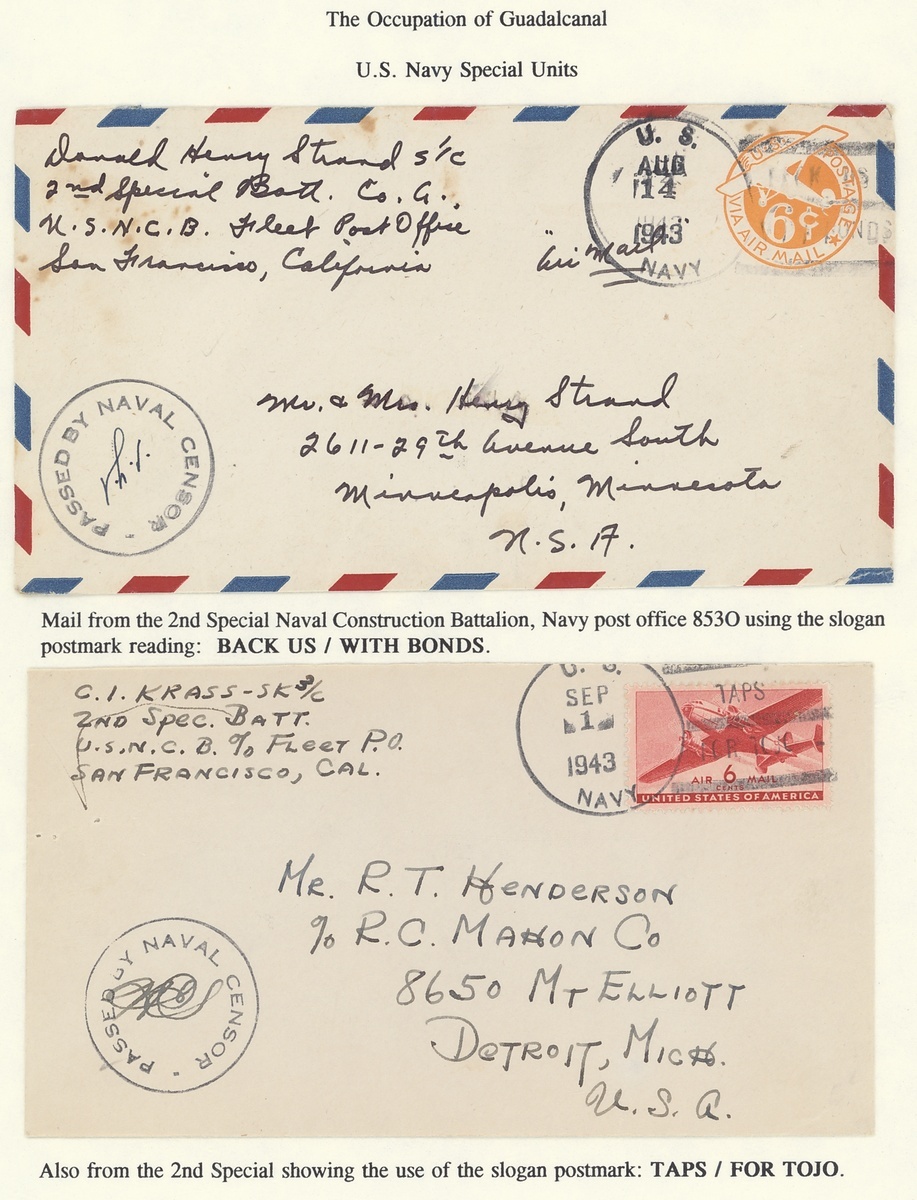 The Occupation of Guadalcanal
U.S. Navy Special Units
Donald Henry Strand S1/C
2nd Special Batt. Co. G.
U.S.N.C.B. Fleet Post Office
San Francisco, California
"Air Mail"
U. S.
AUG
14
1943
NAVY
U.S. POSTAGE
6¢
VIA AIR MAIL
PASSED BY NAVAL CENSOR
Mr. & Mrs. Henry Strand
2611-29th Avenue South
Minneapolis, Minnesota
U.S.A.
Mail from the 2nd Special Naval Construction Battalion, Navy post office 853O using the slogan
postmark reading: BACK US / WITH BONDS.
C.I. KRASS-SK 3/C
2ND SPEC. BATT.
U.S.N.C.B. % FLEET P.O.
SAN FRANCISCO, CAL.
U. S.
SEP
1
1943
NAVY
TAPS
FOR TOJO
AIR 6 MAIL
CENTS
UNITED STATES OF AMERICA
MR. R.T. HENDERSON
% R.C. MAHON CO
8650 MT ELLIOTT
DETROIT, MICH.
U.S.A.
PASSED BY NAVAL CENSOR
Also from the 2nd Special showing the use of the slogan postmark: TAPS / FOR TOJO.